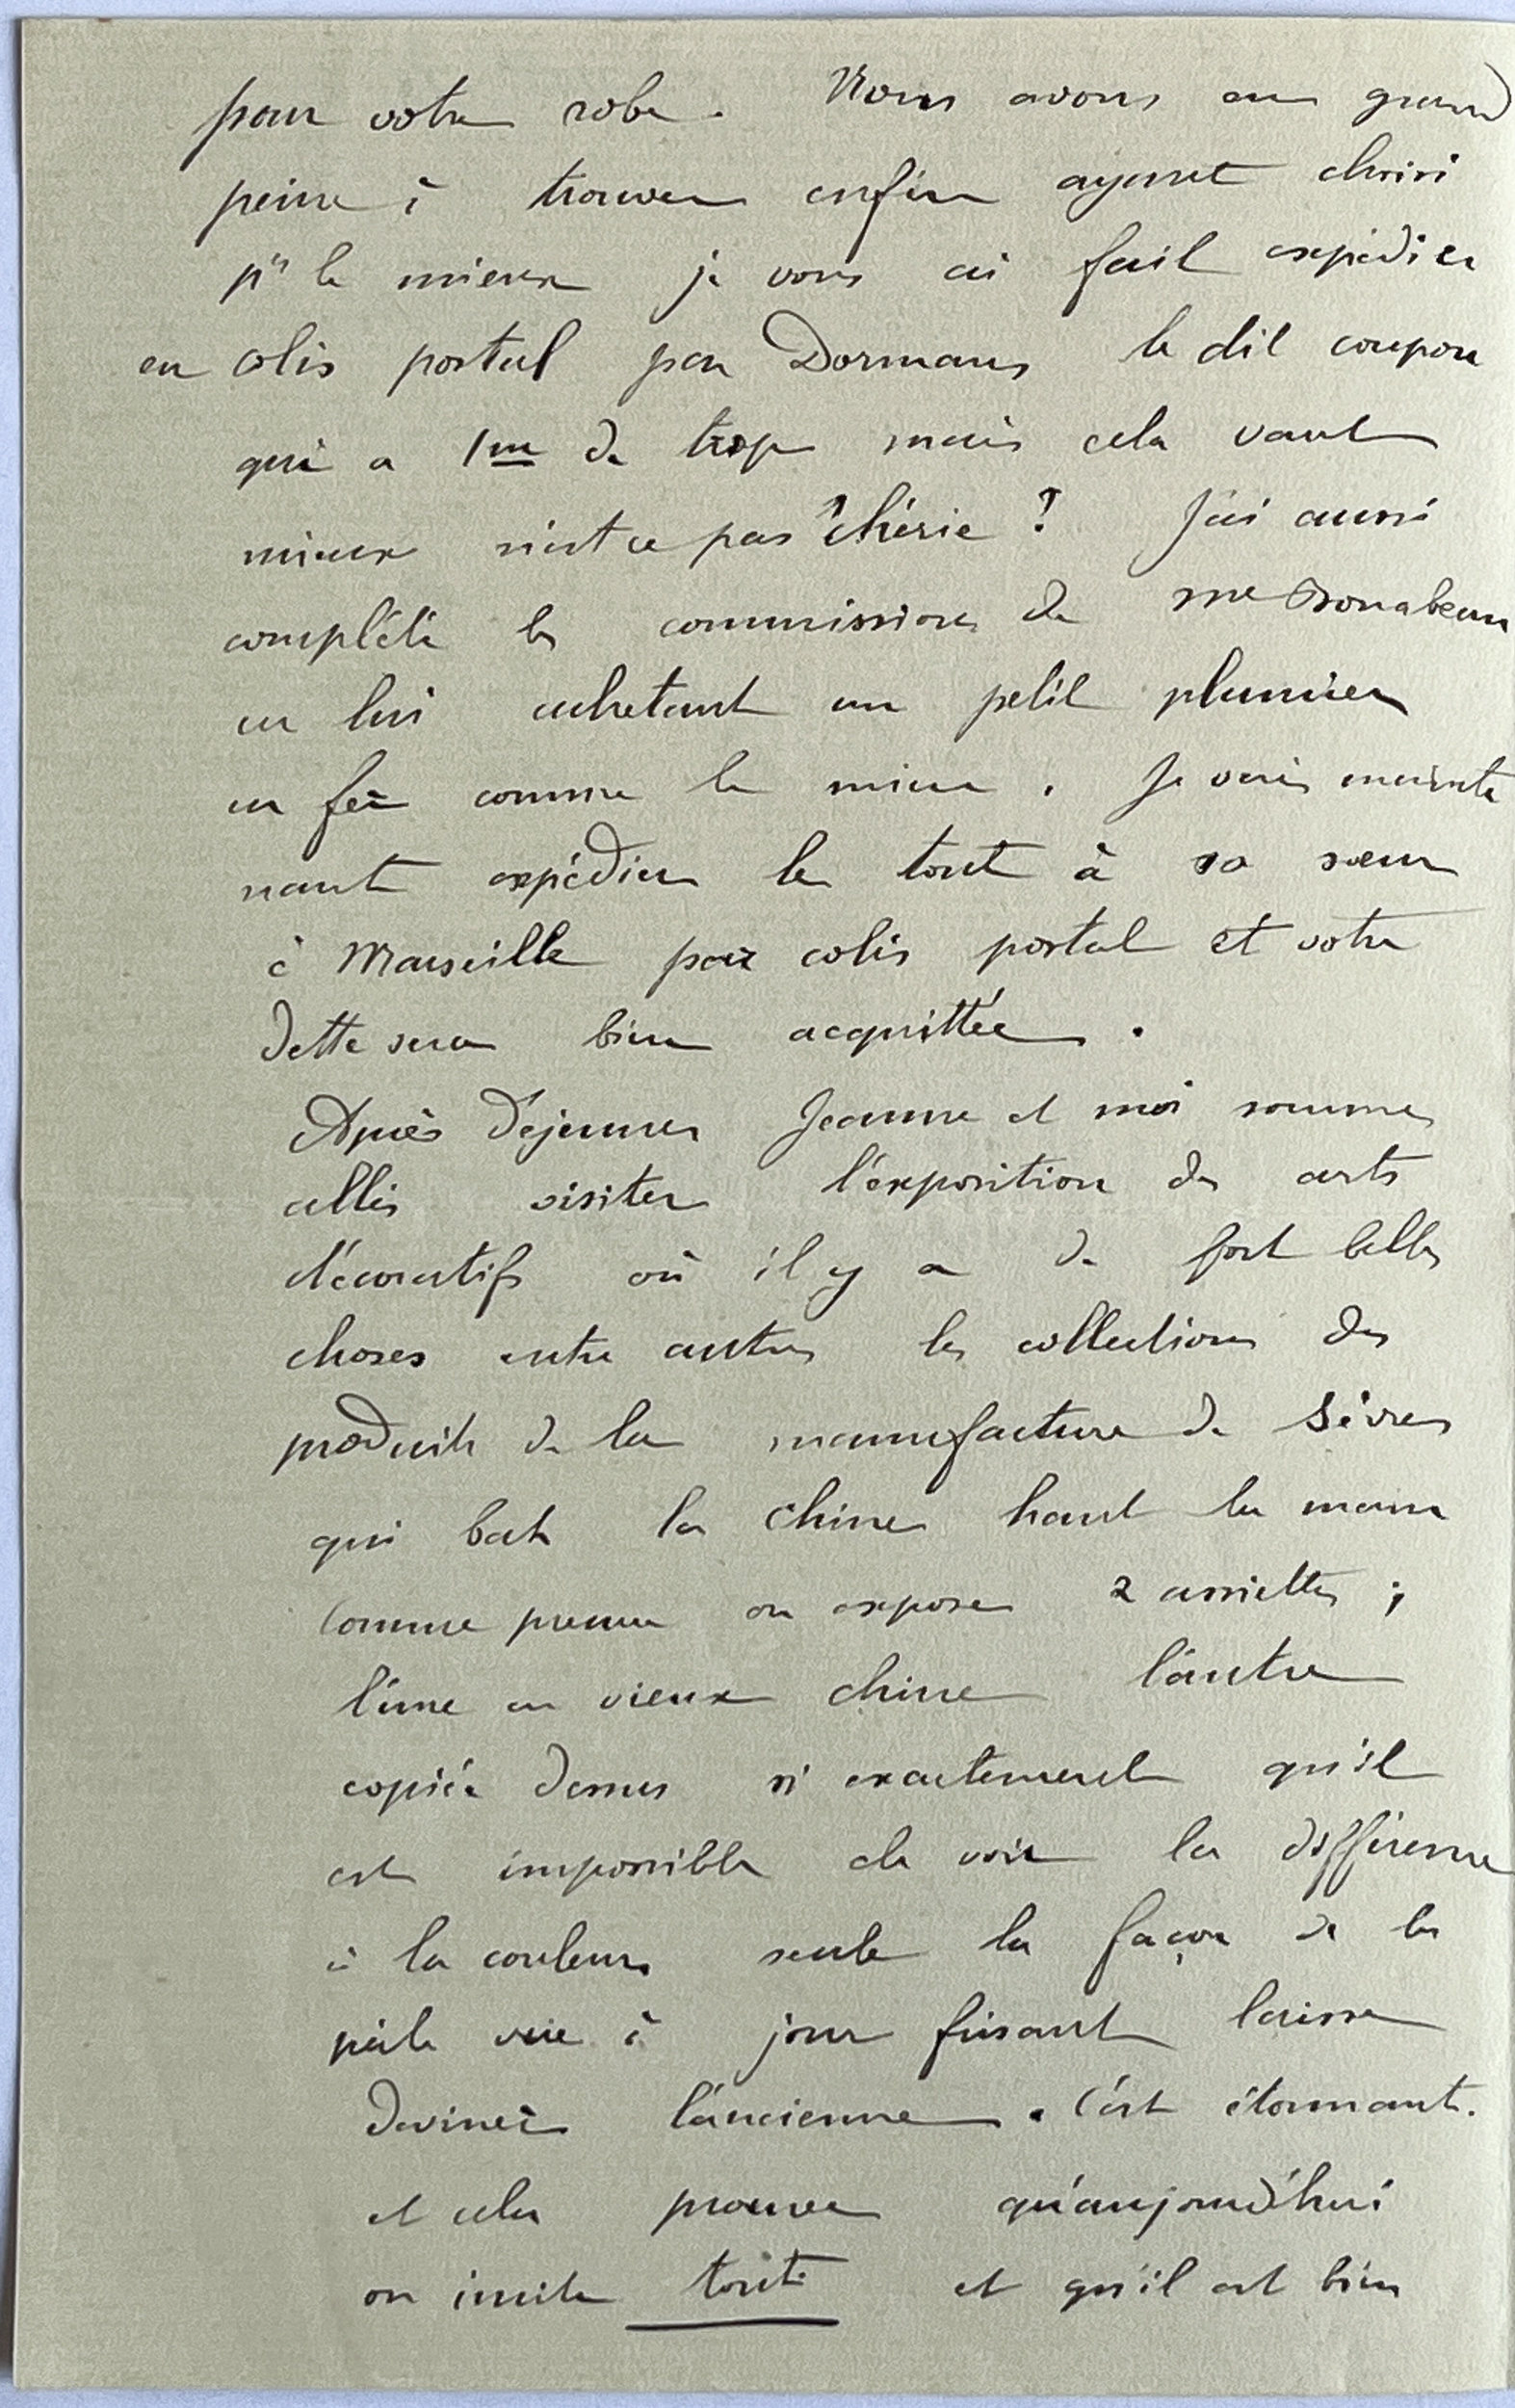 pour votre robe. Nous avons eu grand
peine à trouver enfin ayant choisi
pr le mieux je vous ai fait expédier
en colis postal par Dormans le dit coupon
qui a 1m de trop mais cela vaut
mieux n'est ce pas chérie ? J'ai aussi
complété les commissions de me
en lui achetant un petit plumier
en fer comme le mien. Je vais mainte
nant expédier le tout à sa sœur
à Marseille par colis postal et votre
dette sera bien acquittée.
Après déjeuner Jeanne et moi sommes
allés visiter l'exposition des arts
décoratifs où il y a de fort belles
choses entre autres les collections des
produits de la manufacture de Sèvres
qui bat la chine haut la main
Comme preuve on expose 2 assiettes ;
l'une en vieux chine l'autre
copiée dessus si exactement qu'il
est impossible de voir la différence
à la couleur seule la façon de la
pâte vue à jour frisant laisse
deviner l'ancienne. C'est étonnant.
et cela prouve qu'aujourd'hui
on imite tout et qu'il est bien